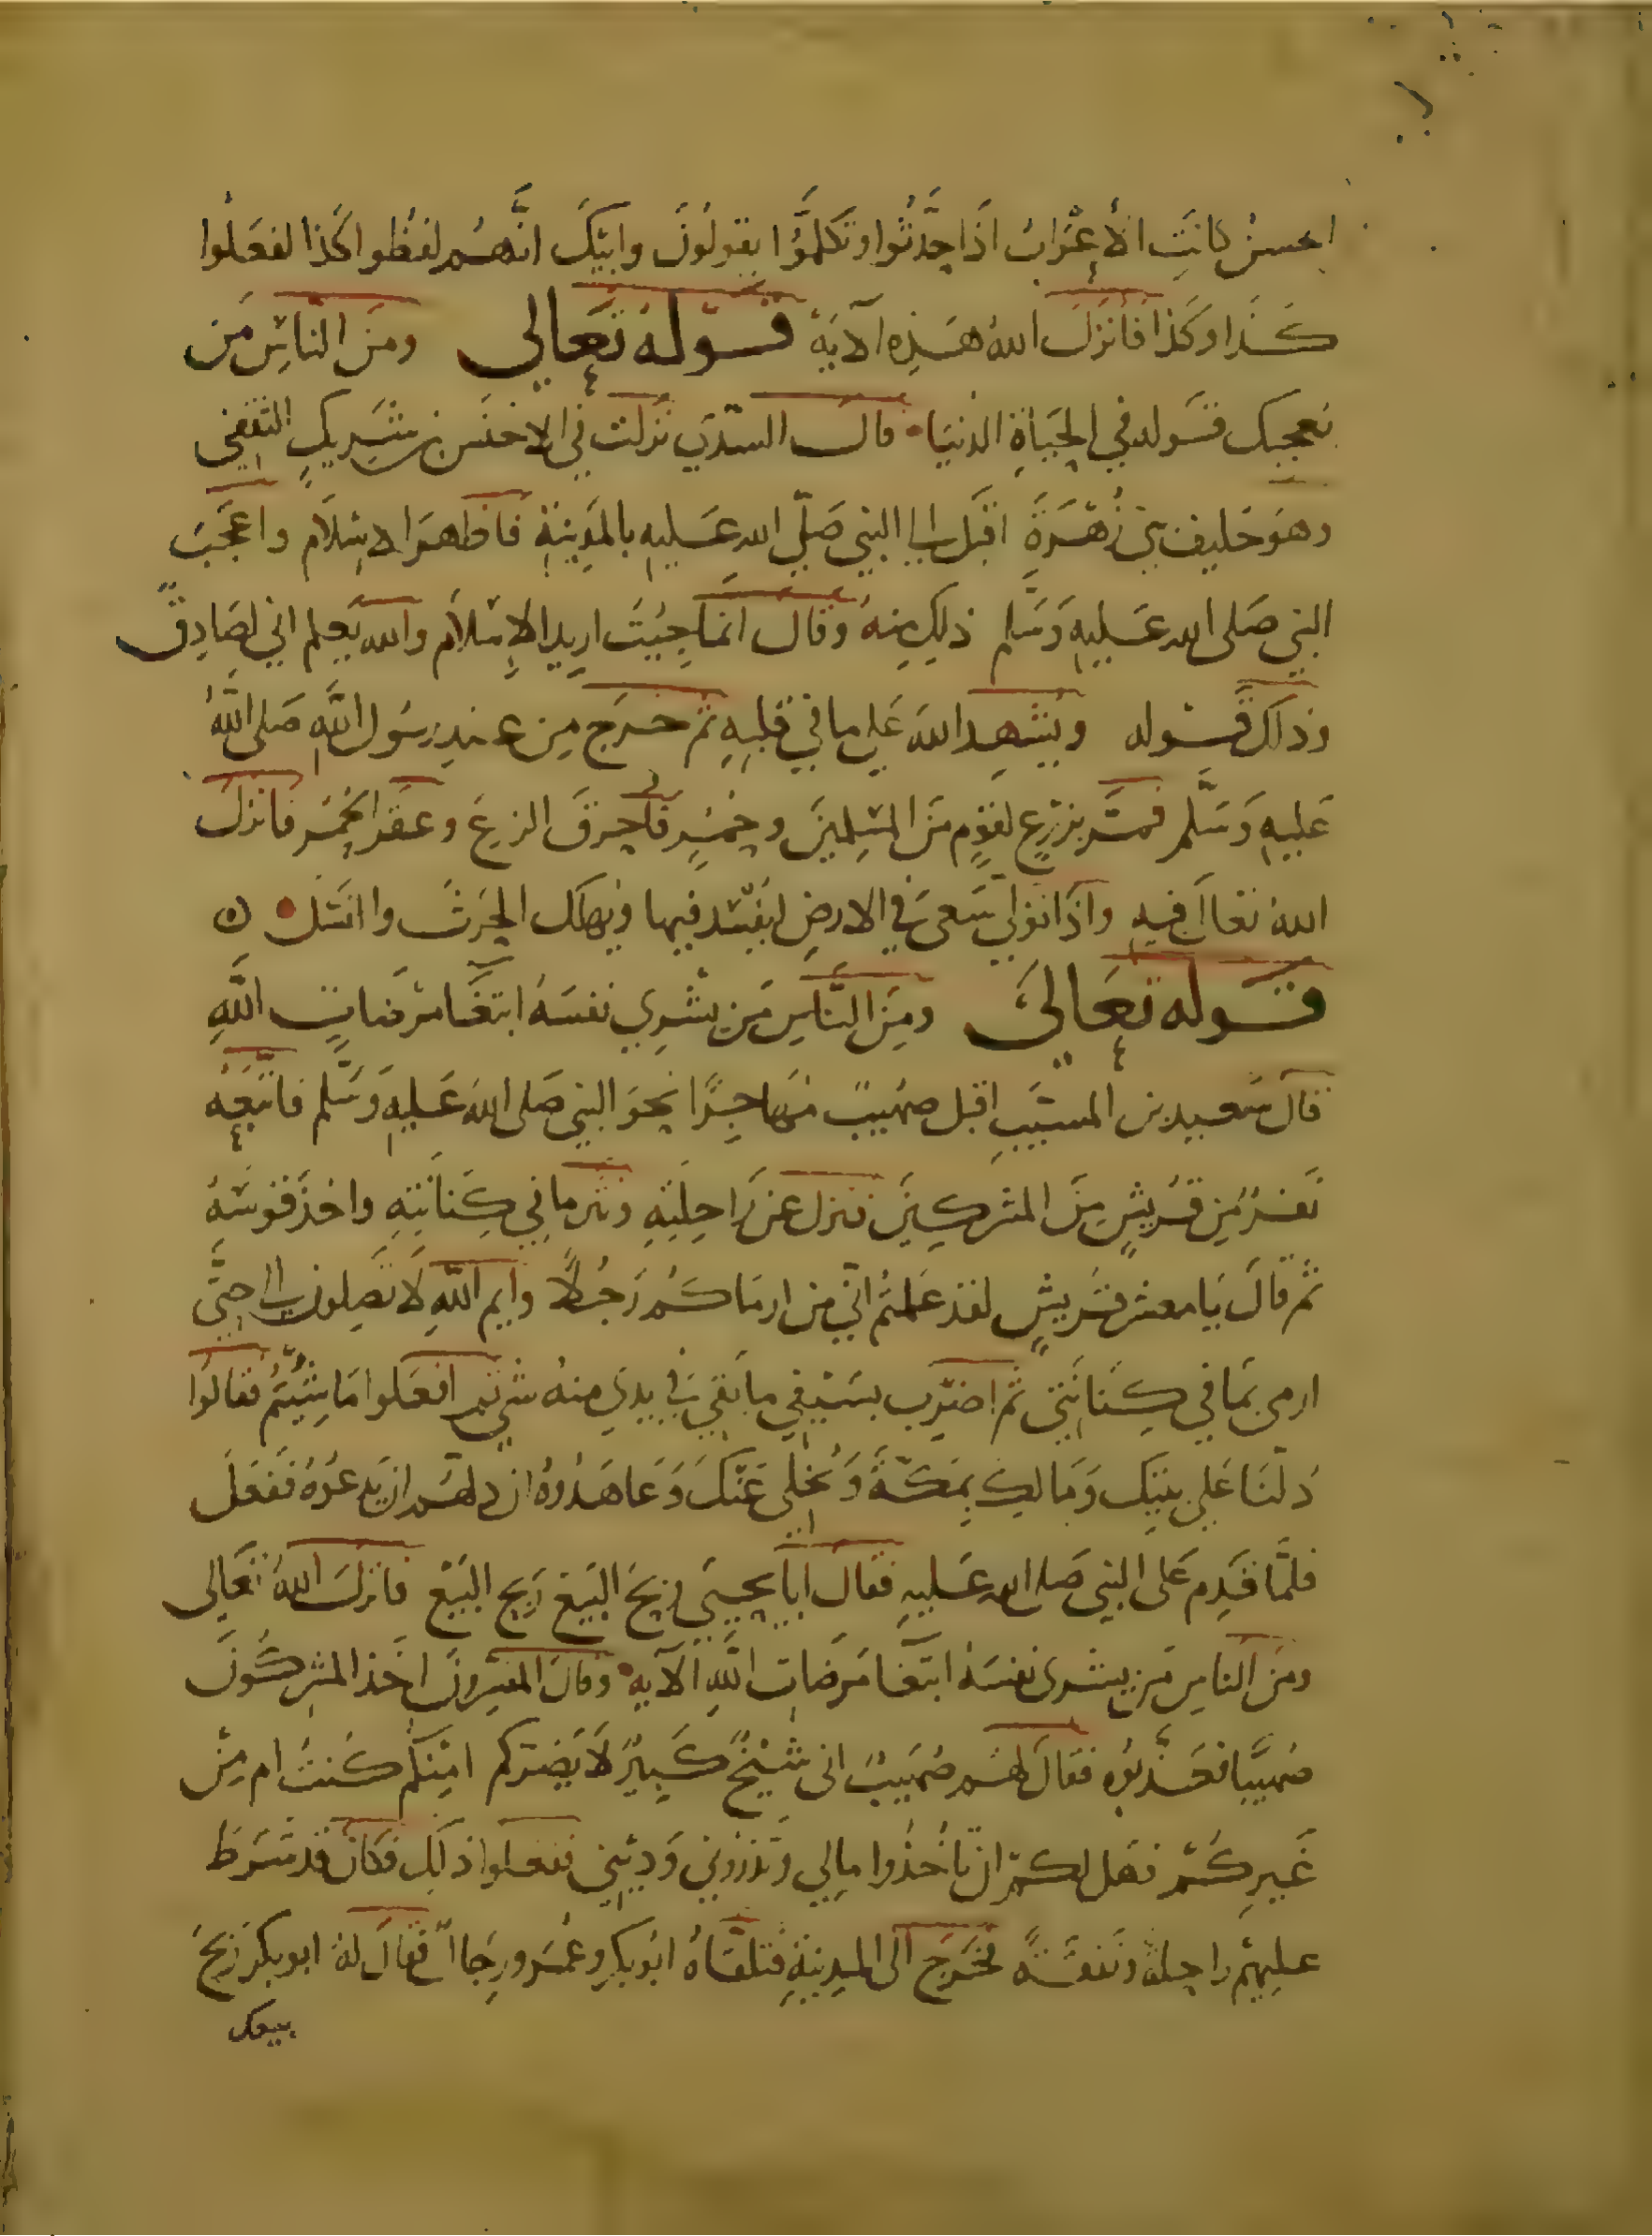 الحسن كانت الأعراب اذا حدّثوا وتكلموا يقولون وابيك انهم لفظوا كذا لفعلوا
كذا وكذا فانزل الله هذه الآية قوله تعالي ومن الناس من
يعجبك قوله في الحياة الدنيا قال السدي نزلت في الاخنس بن شريك الثقفي
وهو حليف بني زهرة اقبل الى النبي صلى الله عليه بالمدينة فاظهر الاسلام واعجب
النبي صلى الله عليه وسلم ذلك منه وقال انما جيت اريد الاسلام والله يعلم اني لصادق
وذلك قوله ويشهد الله علي ما في قلبه ثم خرج من عند رسول الله صلى الله
عليه وسلم فمر بزرع لقوم من المسلمين وحمر فاحرق الزرع وعقر الحمر فانزل
الله تعالى فيه واذا تولى سعى في الارض ليفسد فيها ويهلك الحرث والنسل ه
قوله تعالى ومن الناس من يشري نفسه ابتغا مرضات الله
قال سعيد بن المسيب اقبل صهيب مهاجرًا نحو النبي صلى الله عليه وسلم فاتبعه
نفر من قريش من المشركين فنزل عن راحلته ونثر ما في كنانته واخذ قوسه
ثم قال يا معشر قريش لقد علمتم اني من ارماكم رجلا وايم الله لا تصلون الي حتى
ارمى بما في كنانتي ثم اضرب بسيفي ما بقي في يدى منه شي ثم افعلوا ما شيتم فقالوا
دلنا علي بيتك ومالك بمكة ونخلي عنك وعاهدوه ان دلهم ان يدعوه ففعل
فلما قدم على النبي صلى الله عليه فقال ابا يحيى ربح البيع ربح البيع فانزل الله تعالى
ومن الناس من يشرى نفسه ابتغا مرضات الله الآيه وقال المفسرون اخذ المشركون
صهيبا فعذبوه فقال لهم صهيب انى شيخ كبير لا يضركم امنكم كنت ام من
غيركم فهل لكم ان تاخذوا مالي وتذروني وديني ففعلوا ذلك فكان قد شرط
عليهم راحلة ونفقة فخرج الى المدينة فتلقاه ابوبكر وعمر ورجال فقال له ابوبكر ربح
بيعك